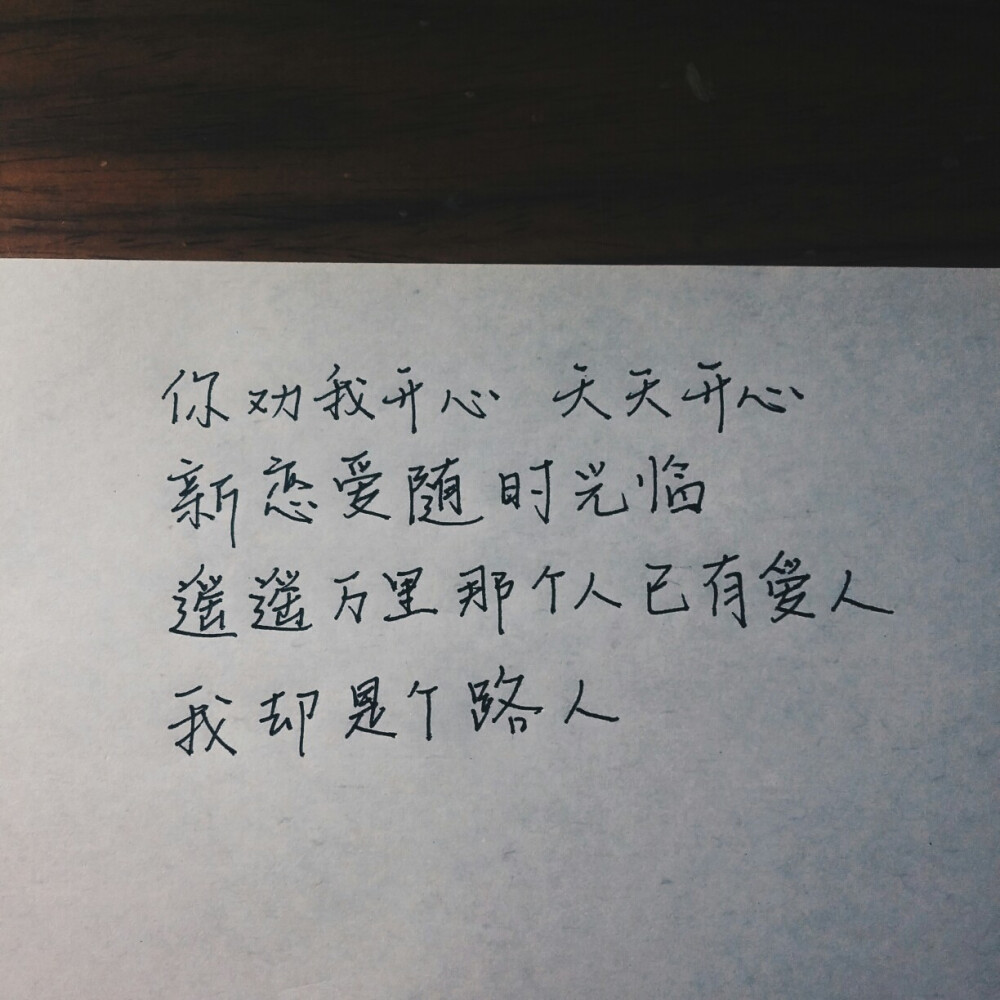 你劝我开心 天天开心
新恋爱随时光临
遥遥万里那个人已有爱人
我却是个路人